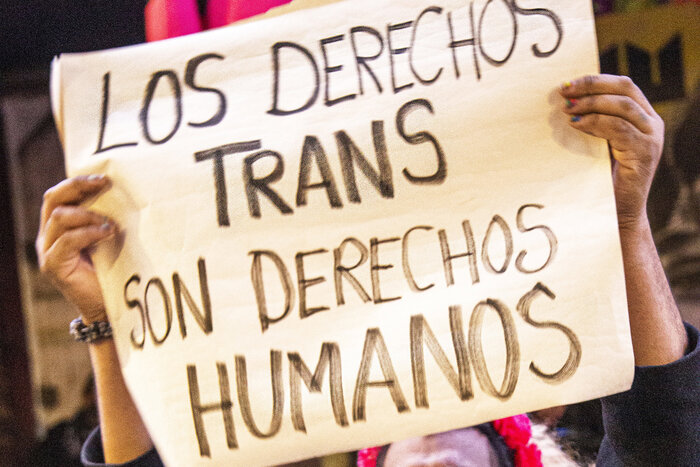 LOS DERECHOS
TRANS
SON DERECHOS
HUMANOS